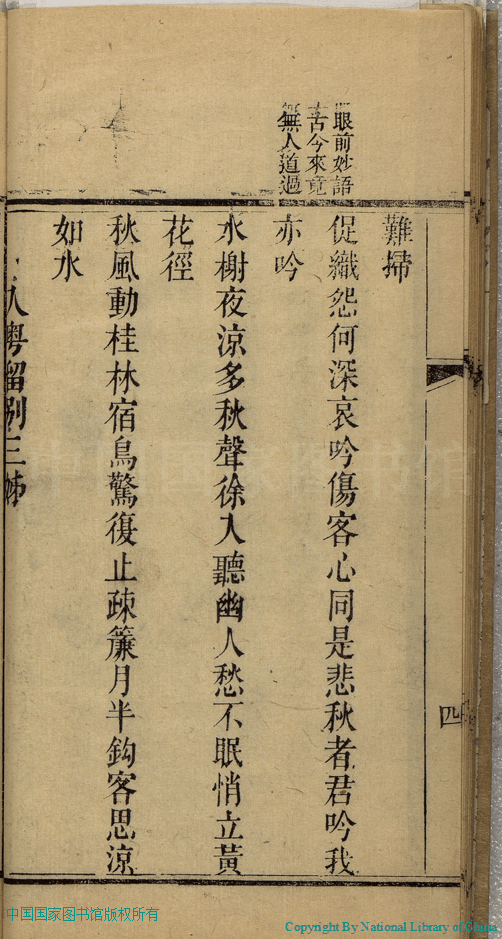 眼前妙語
古今來竟
無人道過
難掃
促織怨何深哀吟傷客心同是悲秋者君吟我
亦吟
水榭夜涼多秋聲徐入聽幽人愁不眠悄立黃
花徑
秋風動桂林宿鳥驚復止疎簾月半鈎客思涼
如水
入粵留別三姊
四
中国国家图书馆版权所有
Copyright By National Library of China